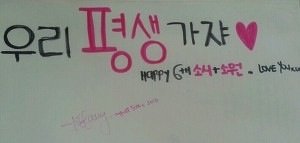 우리 평생 가쟈♥
HAPPY 6th 소시+소원. LOVE YOU
Tiffany